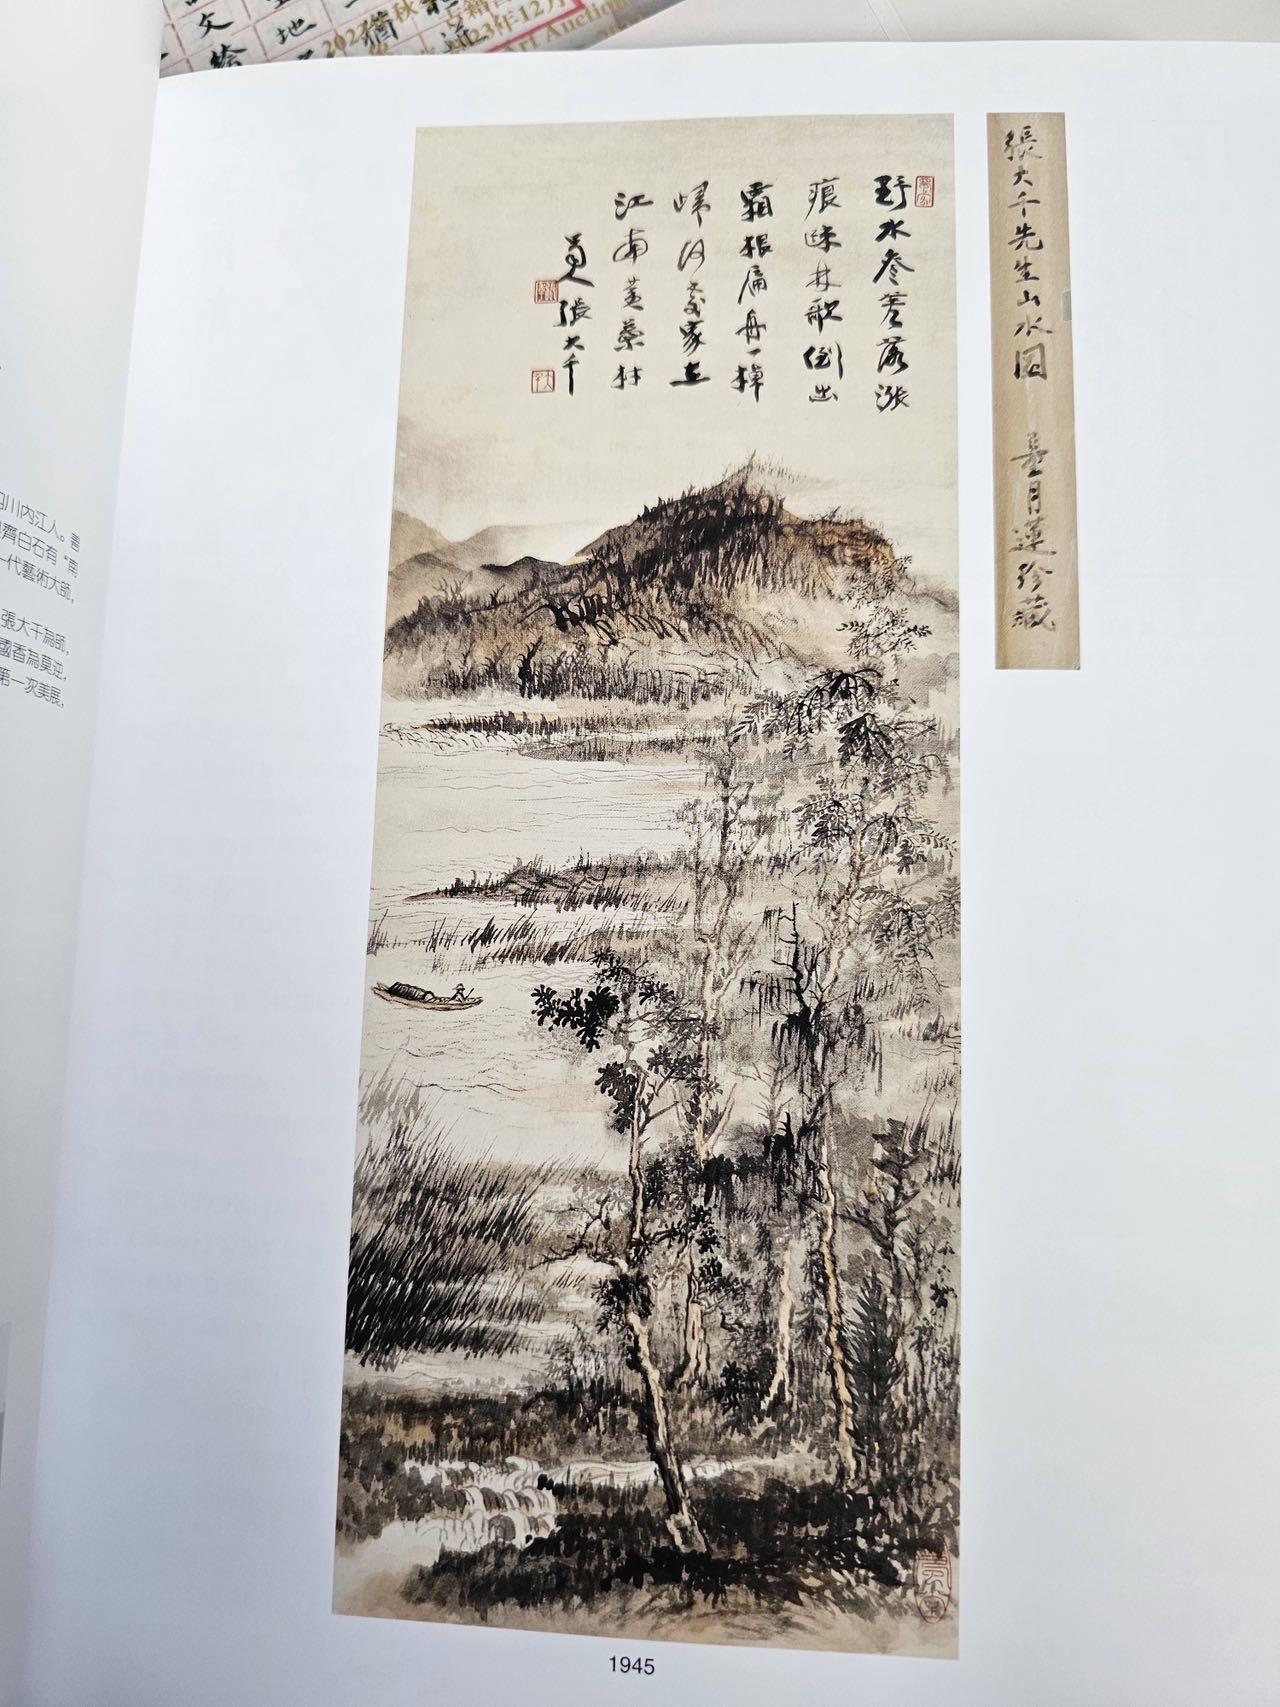 文
繪
地
Art Auction
23年12月
川內江人。善
齊白石有“南
一代藝術大師,
張大千為師,
國香為莫逆,
第一次美展,
野水參差落漲
痕疎林欹倒出
霜根扁舟一棹
歸何處家在
江南黃葉村
爰人張大千
張大千先生山水圖
月蓮珍藏
1945